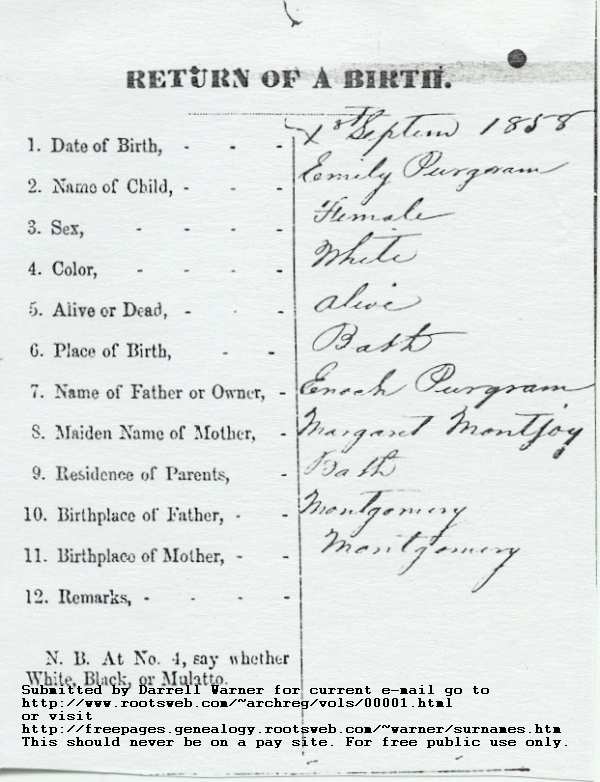 RETURN OF A BIRTH.
1. Date of Birth, - - - Septem 1858
2. Name of Child, - - - Emily Purgram
3. Sex, - - - - Female
4. Color, - - - - White
5. Alive or Dead, - - - alive
6. Place of Birth, - - Bath
7. Name of Father or Owner, - Enoch Purgram
8. Maiden Name of Mother, - Margaret Montjoy
9. Residence of Parents, - Bath
10. Birthplace of Father, - - Montgomery
11. Birthplace of Mother, - - Montgomery
12. Remarks, - - - -
N. B. At No. 4, say whether
White, Black, or Mulatto.
Submitted by Darrell Warner for current e-mail go to
http://www.rootsweb.com/~archreg/vols/00001.html
or visit
http://freepages.genealogy.rootsweb.com/~warner/surnames.htm
This should never be on a pay site. For free public use only.